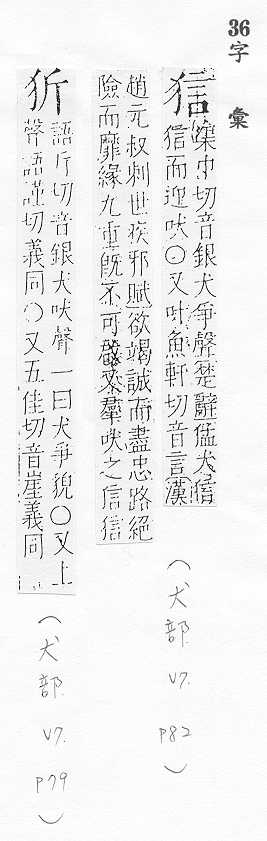 36
字 彙
狺
巾切音銀犬爭聲楚辭猛犬狺
狺而迎吠○又叶魚軒切音言漢
趙元叔刺世疾邪賦欲竭誠而盡忠路絕
險而靡緣九重旣不可啓又羣吠之狺狺
(犬部 V7. P82)
㹞
語斤切音銀犬吠聲一曰犬爭貌○又上
聲語謹切義同○又五佳切音崖義同
(犬部 V7. P79)